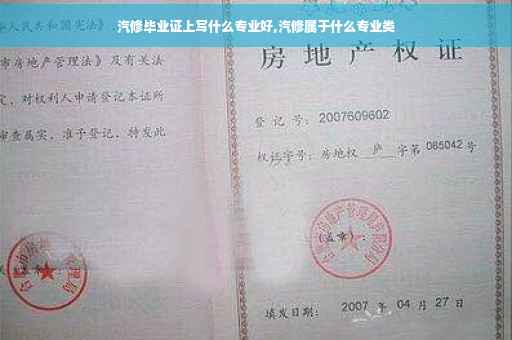 汽修毕业证上写什么专业好,汽修属于什么专业类
人民共和国宪法》及
市房地产管理法》及有关法
定，对权利人申请登记本证所
审查属实，准予登记，特发此
房地产权证
登记号：2007609602
权证字号：房地权 庐 字第 065042 号
(盖章)：
填发日期：2007 年 04 月 27 日